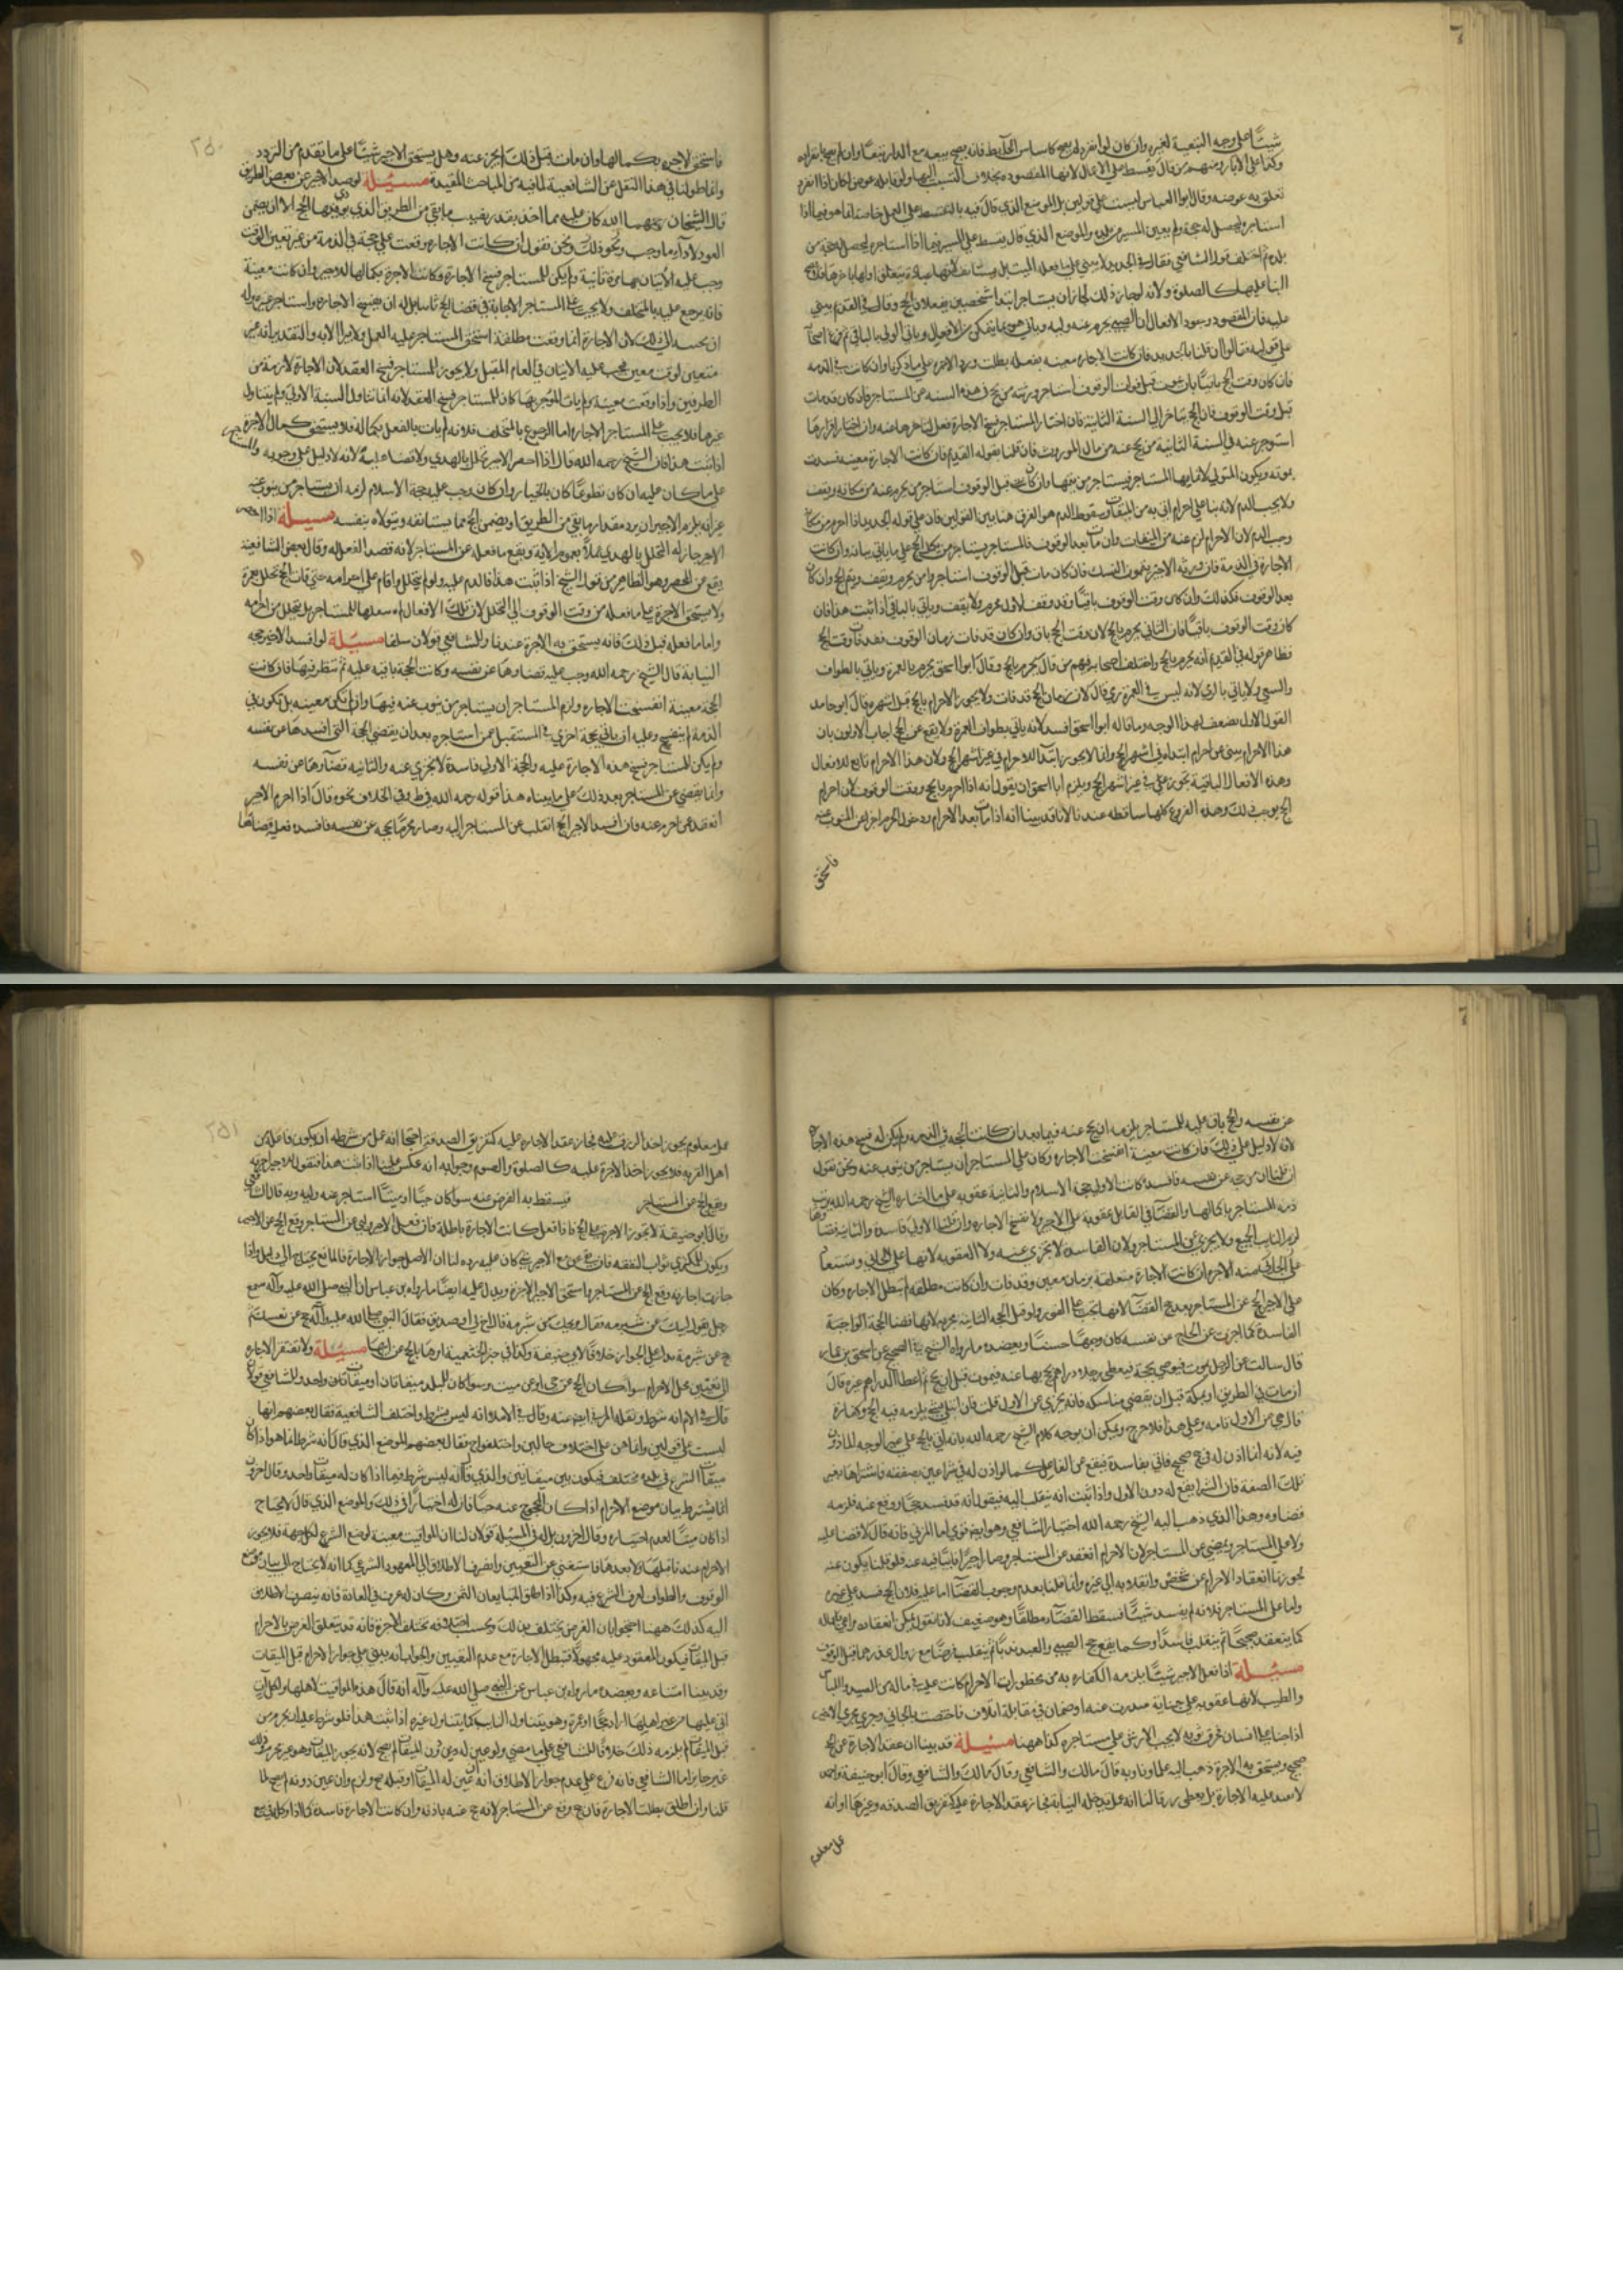 شيئا على وجه التبعية لغيره وان كان لو انفرد لم يصح كاساس الحائط فانه يصح بيعه مع الدار تبعا وان لم يصح بانفراده
وكذا على الآبار ومنهم من قال يقسط على الاعمال لانها المقصودة بخلاف التسبب اليها ولو قابله عوض لكان اذا انفرد
تعلق به عوضه وقال ابوا العباس ليست على قولين بل الموضع الذي قال فيه بالتقسط على العمل خاصة انما هو فيما اذا
استاجره ليحصل له حجة ولم يعين المسير من بلده والموضع الذي قال يقسط على السير فيما اذا استاجره ليحصل له حجة من
بلده ثم اختلف قول الشافعي فقال في الجديد لا يبني على ما فعله الميت بل يستانف لانها عبادة يتعلق اولها باخرها فلا يصح
البنا عليها كالصلوة ولانه لو جاز ذلك لجاز ان يستاجر ابتدا شخصين يفعلان الحج وقال في القديم يبني
عليه فان المقصود وجود الافعال
على قوليه قالوا ان قلنا بالجديد فان كانت الاجارة معينة بفعله بطلت ورد الاجرة على ما ذكرنا وان كانت في الذمة
فان كان وقت الحج باقيا بان يموت قبل فوات الوقوف استاجر ورثته من يحج في هذه السنة عن المستاجر وان كان قد مات
قبل وقت الوقوف فان الحج يتاخر الى السنة الثانية فان اختار المستاجر فسخ الاجارة فعل لتاخرها عنه وان اختار اقرارها
استوجر عنه في السنة الثانية من يحج عنه من مال الموروث فان قلنا بقوله القديم فان كانت الاجارة معينة فسدت
بموته ويكون المتولي لاتمامها المستاجر فيستاجر من يتمها وان كان قبل الوقوف استاجر من يحرم عنه من مكانه ويقف
ولا يجب الدم لانه بنا على احرام اتى به من الميقات وسقوط الدم هو الفرق هنا بين القولين فان على قوله الجديد اذا احرم من مكة
وجب الدم لان الاحرام لزم عنه من الميقات وان مات بعد الوقوف فالمستاجر يستاجر من يكمل الحج على ما ياتي بيانه وان كانت
الاجارة في الذمة فان ورثة الاجير يتمون النسك فان كان مات قبل الوقوف استاجروا من يحرم ويقف ويتم الحج وان كان
بعد الوقوف فكذلك وان كان وقت الوقوف باقيا وقد وقف الاول يحرم ولا يقف وياتي بالباقي اذا ثبت هذا فان
كان وقت الوقوف باقيا فان الثاني يحرم بالحج لان وقت الحج باق وان كان قد فات زمان الوقوف فقد فات وقت الحج
فظاهر قوله في القديم انه يحرم بالحج واختلف اصحابه فمنهم من قال يحرم بالحج وقال ابوا اسحق يحرم بالعمرة وياتي بالطواف
والسعي ولا ياتي بالرمي لانه ليس في العمرة رمي قال لان زمان الحج قد فات ولا يجوز الاحرام بالحج قبل اشهره قال ابو حامد
القول الاول يضعف لهذا الوجه وما قاله ابوا اسحق افسد لانه ياتي بطواف العمرة ولا يقع عن الحج اجاب الاولون بان
هذا الاحرام يبنى عن احرام ابتداه في اشهر الحج وانما لا يجوز ابتدا الاحرام في غير اشهر الحج ولان هذا الاحرام تابع للافعال
وهذه الافعال الباقية تجوز على في غير اشهر الحج ويلزم ابا اسحق ان يقول انه اذا احرم بالحج ووقت الوقوف لان احرام
الحج يوجب ذلك وهذه الفروع كلها ساقطة عندنا لانا قد بينا انه اذا مات بعد الاحرام ودخول الحرم اجزا عن المنوب عنه
فاستحق
٢٥٠
فاستحق الاجرة بكمالها وان مات قبل ذلك لم يجز عنه وهل يستحق الاجير شيئا على ما تقدم من التردد
وانما طولنا في هذا النقل عن الشافعية لما فيه من المباحث المفيدة مسئلة لو صد الاجير عن بعض الطريق
قال الشيخان رحمهما الله كان عليه مما اخذ بقدر نصيب ما بقي من الطريق الذي يؤدي فيها الحج الا ان يضمن
العود لادآء ما وجب ونحو ذلك ونحن نقول ان كانت الاجارة وقعت على حجة في الذمة من غير تعيين الوقت
وجب عليه الاتيان بها مرة ثانية ولم يكن للمستاجر فسخ الاجارة وكانت الاجرة بكمالها للاجير وان كانت معينة
فانه يرجع عليه بالمتخلف ولا يجب على المستاجر الاجابة في قضا الحج ثانيا بل له ان يفسخ الاجارة واستاجر غيره وله
ان يجيبه الى ذلك لان الاجارة انما وقعت مطلقة استحق المستاجر عليه العمل
متعين لوقت معين فيجب عليه الاتيان في العام المقبل ولا يجوز للمستاجر فسخ العقد لان الاجارة لازمة من
الطرفين واذا وقعت معينة ولم يات المؤجر بها كان للمستاجر فسخ العقد لانه انما تناول السنة الاولى ولم يتناول
غيرها فلا يجب على المستاجر الاجارة اما الرجوع بالمتخلف فلانه لم يات بالفعل بكماله فلا يستحق كمال الاجرة
اذا ثبت هذا فان الشيخ رحمه الله قال اذا احصر الاجير تحلل بالهدي ولا قضاء عليه لانه لا دليل على وجوبه والمستاجر
على ما كان عليه ان كان تطوعا كان بالخيار وان كان وجب عليه حجة الاسلام لزمه ان يستاجر من ينوب عنه
غير انه يلزم الاجير ان يرد مقدار ما بقي من الطريق او يضمن الحج مما يستانفه ويتولاه بنفسه مسيلة اذا احصر
الاجير جاز له التحلل بالهدي عملا بعموم الآية ويقع ما فعله عن المستاجر لانه قصد الفعل له وقال بعض الشافعية
يقع عن المحصر وهو الظاهر من قول الشيخ اذا ثبت هذا فالدم عليه ولو لم يتحلل واقام على احرامه حتى فات الحج تحلل بعمرة
ولا يستحق الاجرة على ما فعله من وقت الوقوف الى التحلل لان تلك الافعال لم يفعلها للمستاجر بل ليتحلل من احرامه
واما ما فعله قبل ذلك فانه يستحق به الاجرة عندنا وللشافعي قولان سلفا مسئلة لو افسد الاجير حجه
النيابة قال الشيخ رحمه الله وجب عليه قضاوها عن نفسه وكانت الحجة باقية عليه ثم ينظر فيها فان كانت
الحجة معينة انفسخت الاجارة ولزم المستاجر ان يستاجر من ينوب عنه فيها وان لم تكن معينة بل تكون في
الذمة لم ينفسخ وعليه ان ياتي بحجة اخرى في المستقبل عمن استاجره بعد ان يقضي الحجة التي افسدها عن نفسه
ولم يكن للمستاجر فسخ هذه الاجارة عليه والحجة الاولى فاسدة لا تجزي عنه والثانية قضآؤها عن نفسه
وانما يقضي عن المستاجر بعد ذلك على ما بيناه هذا قوله رحمه الله في ط وفي الخلاف نحوه قال اذا احرم الاجير
انعقد عن احرم عنه فان افسد الاجير الحج انقلب عن المستاجر اليه وصار محرما بحجة عن نفسه فاسدة فعليه قضاؤها
عن نفسه والحج باق عليه للمستاجر يلزمه ان يحج عنه فيما بعد ان كانت الحجة في الذمة ولم يكن له فسخ هذه الاجارة
لانه لا دليل على ذلك فان كانت معينة انفسخت الاجارة وكان على المستاجر ان يستاجر من ينوب عنه ونحن نقول
ان قلنا ان من حج عن نفسه فافسده كانت الاولى حجة الاسلام والثانية عقوبة على ما اختاره الشيخ رحمه الله برئت
ذمة المستاجر باكمالها والقضآ في القابل عقوبة على الاجير ولا تفسخ الاجارة وان قلنا الاولى فاسدة والثانية قضاؤها
لزم النايب الجميع ولا يجزي عن المستاجر ولان الفاسدة لا تجزي عنه ولا العقوبة لانها على الجاني ويستعاد
منه الاجرة ان كانت الاجارة متعلقة بزمان معين وقد فات وان كانت مطلقة لم تبطل الاجارة وكان
على الاجير الحج عن المستاجر بعد حج القضآ لانها تجب على الفور ولو قيل الحجة الثانية تجزيه لانها قضا الحجة الواجبة
الفاسدة كما اجزت عن الحاج عن نفسه كان وجها حسنا ويعضده ما رواه الشيخ في الصحيح عن اسحق بن عمار
قال سالت عن الرجل يموت فيوصي بحجة فيعطى رجلا دراهم يحج بها عنه فيموت قبل ان يحج ثم اعطا الدراهم غيره قال
ان مات في الطريق او بمكة قبل ان يقضي مناسكه فانه يجزي عن الاول قلت فان ابتلى بشيء يلزمه فيه الحج وكفارة
قال هي عن الاول تامة وعلى هذا فلا حرج ويمكن ان يوجه كلام الشيخ رحمه الله بانه اتى بالحج على غير الوجه الماذون
فيه لانه انما اذن له في حج صحيح فاتى بفاسدة فيقع عن الفاعل كما لو اذن له في شراعين بصفقة فاشتراها بغير
تلك الصفة فان الشرا يقع له دون الاول واذا ثبت انه ينقلب اليه فيقول انه قد فسد حجا وقع عنه فلزمه
قضاوه وهذا الذي ذهب اليه الشيخ رحمه الله اختيار الشافعي وهو ايضا قوي اما المزني فانه قال لا قضا عليه
ولا على المستاجر ويمضي عن المستاجر لان الاحرام انعقد عن المستاجر وصار اجيرا نايبا فيه عنه فلو قلنا يكون عنه
لجوزنا انعقاد الاحرام عن شخص وانقلابه الى غيره وانما قلنا بعدم وجوب القضآ اما عليه فلان الحج فسد على غيره
واما على المستاجر فلانه لم يفسد شيئا فسقط القضآء مطلقا وهو ضعيف لانا نقول يمكن انعقاده
كما ينعقد صحيحا ثم ينقلب فاسدا وكما يقع حج الصبي والعبد ندبا ثم ينقلب فرضا مع زوال عذرهما قبل الوقوف
مسئلة اذا فعل الاجير شيئا يلزمه الكفارة به من محظورات الاحرام كانت عليه في ماله من الصيد واللباس
والطيب لانها عقوبة على جناية صدرت عنه او ضمان في مقابلة اتلاف فاختصت بالجاني وجرى مجرى الاجير
اذا جنا على انسان فخرق ثوبه لا يجب الارش على مستاجره كذا ههنا مسئلة قد بينا ان عقد الاجارة عن الحج
صحيح ويستحق به الاجرة ذهب اليه علماونا وبه قال مالك والشافعي وقال ابو حنيفة واحمد
لا ينعقد عليه الاجارة بل يعطى رزقا لنا انه عمل يدخله النيابة فجاز عقد الاجارة عليه كتفريق الصدقة وغيرها وانه
عمل معلوم
٢٥١
عمل معلوم يجوز اخذ الرزق عليه فجاز عقد الاجارة عليه كتفريق الصدقة احتجا انه عمل من شرطه ان يكون فاعله من
اهل القربة فلا يجوز اخذ الاجرة عليه كالصلوة والصوم وجوابه انه عكس علينا اذا ثبت هذا فنقول للاجير اجرته
ويقع الحج عن المستاجر فيسقط به الفرض عنه سوا كان حيا او ميتا استاجر عنه وليه وبه قال الشافعي
وقال ابو حنيفة لا تجوز الاجرة على الحج فاذا فعل كانت الاجارة باطلة فان فعل الاجير ولبى عن المستاجر وقع الحج عن الاجير
ويكون للمكتري ثواب النفقة فان بقي مع الاجير شي كان عليه رده لنا ان الاصل جواز الاجارة فالمانع يحتاج الى دليل واذا
جازت اجارته وقع الحج عن المستاجر واستحق الاجير الاجرة ويدل عليه ايضا ما رواه بن عباس ان النبي صلى الله عليه وآله سمع
رجل يقول لبيك عن شبرمة فقال ويحك من شبرمة فقال اخ لي او صديق فقال النبي صلى الله عليه وآله حج عن نفسك ثم
حج عن شبرمة يدل على الجواز خلافا لابي حنيفة وكذا في خبر الخثعمية امرها بالحج عن ابيها مسئلة ولا تفتقر الاجارة
الى تعيين محل الاحرام سوا كان الحج عن حي او عن ميت وسوا كان للبلد ميقاتان او ميقات واحد وللشافعي قولان
قال في الام انه شرط ونقله المزني ايضا عنه وقال في الاملا انه ليس بشرط واختلف الشافعية فقال بعضهم انها
ليست على قولين وانما هن على اختلاف حالين واختلفوا ح فقال بعضهم الموضع الذي قال انه شرط انما هو اذا كان
ميقات الشرع في بلده مختلف فيكون بين ميقاتين والذي قال انه ليس بشرط فيما اذا كان له ميقات واحد وقال آخرون
انما يشترط بيان موضع الاحرام اذا كان المحجوج عنه حيا فان له اختيارا في ذلك والموضع الذي قال لا يحتاج
اذا كان ميتا لعدم اختياره وقال اخرون بل له في المسئلة قولان لنا ان المواقيت معينة لوضع الشرع لكل جهة فلا يجوز
الاحرام عندنا قبلها ولا بعدها فاستغني عن التعيين وانصرف الاطلاق الى المعهود الشرعي كما انه لا يحتاج الى بيان موضع
الوقوف والطواف لعرف الشرع فيه وكذا اذا اطلق المتبايعان الثمن وكان له عرف في العادة فانه ينصرف الاطلاق
اليه كذلك ههنا احتجوا بان الغرض يختلف بذلك وبحسب اختلافه تختلف الاجرة فانه قد يتعلق الغرض بالاحرام
قبل الميقات فيكون المعقود عليه مجهولا فتبطل الاجارة مع عدم التعيين والجواب انه يبنى على جواز الاحرام قبل الميقات
وقد بينا امتناعه ويعضده ما رواه بن عباس عن النبي صلى الله عليه وآله انه قال هذه المواقيت لاهلها ولكل آت
اتى عليها من غير اهلها اراد حجا او عمرة وهو يتناول النايب كما يتناول غيره اذا ثبت هذا فلو شرط عليه ان يحرم من
قبل الميقات لم يلزمه ذلك خلافا للشافعي على ما مضى ولو عين له دون الميقات لم يصح لانه يجوز الميقات وهو غير محرم وذلك
غير جايز اما الشافعي فانه فرع على عدم جواز الاطلاق انه ان عين له الميقات او قبله صح ولزم وان عين دونه لم يصح لما
قلنا وان اطلق بطلت الاجارة فان حج وقع عن المستاجر لانه حج عنه باذنه وان كانت الاجارة فاسدة كما اذا وكله في بيع